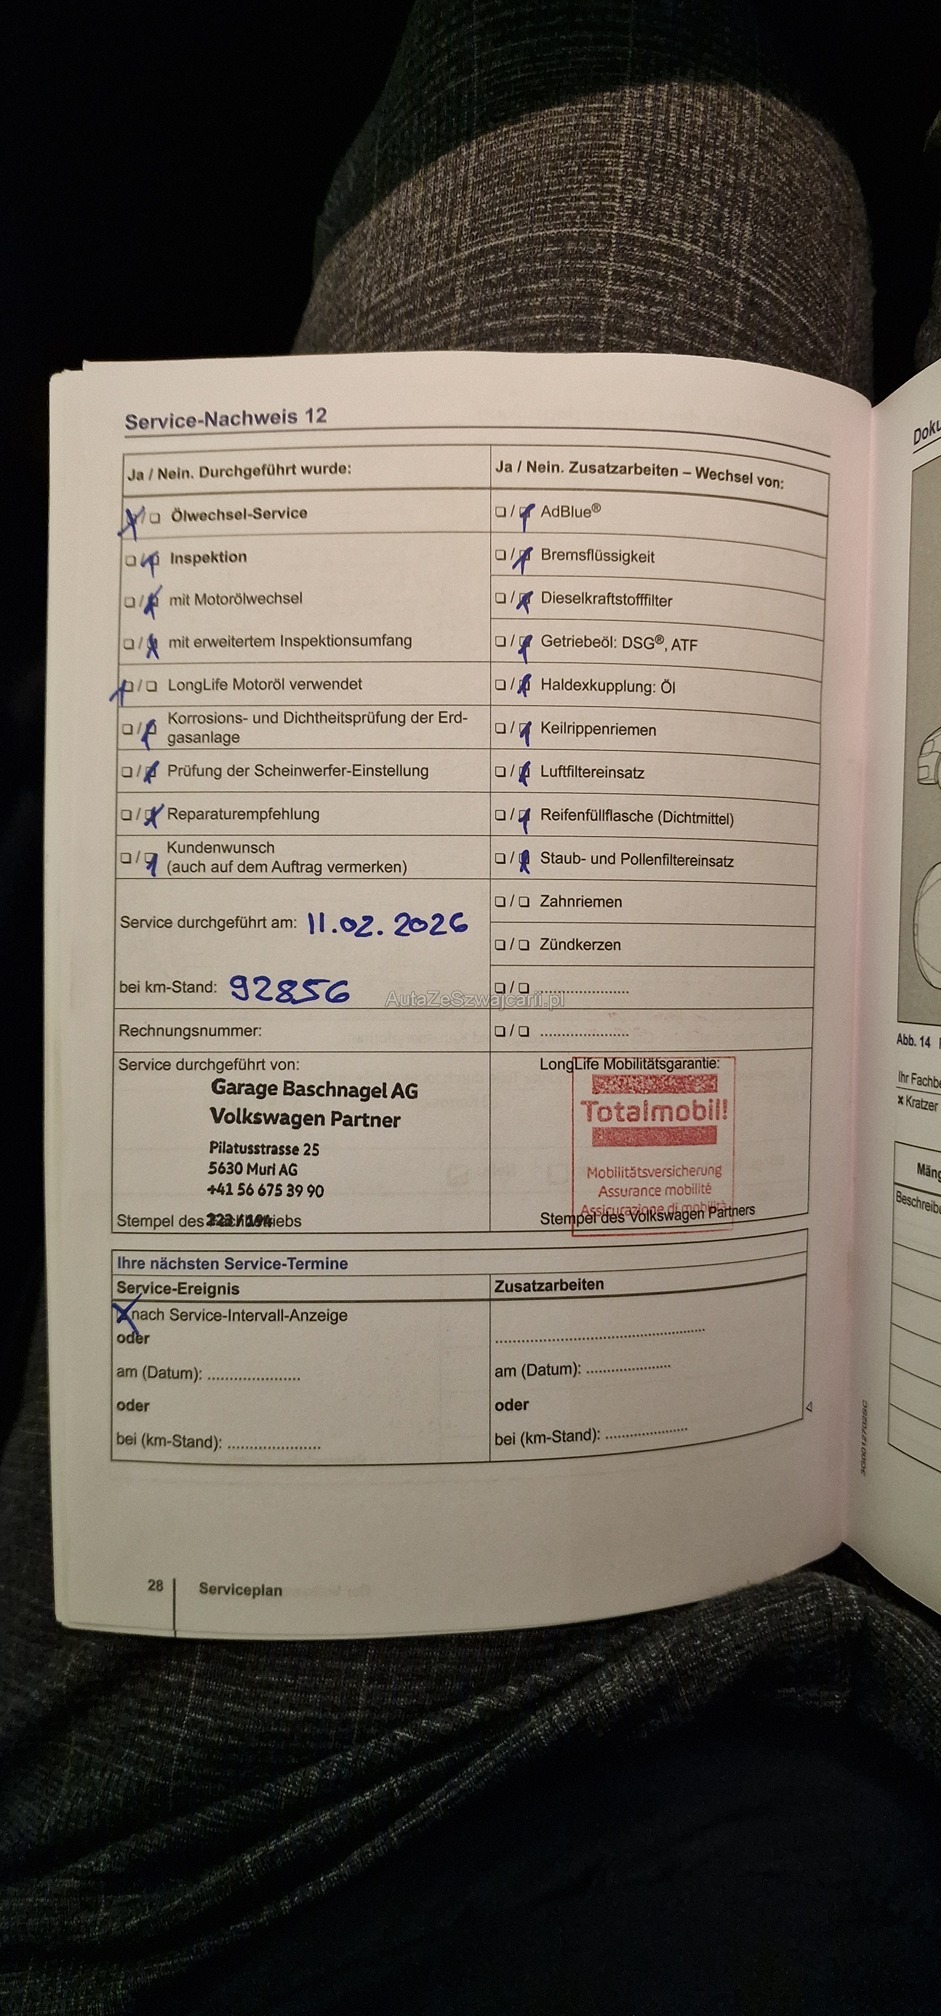 Service-Nachweis 12
Ja / Nein. Durchgeführt wurde:
❏ / ❏ Ölwechsel-Service
❏ / ❏ Inspektion
❏ / ❏ mit Motorölwechsel
❏ / ❏ mit erweitertem Inspektionsumfang
❏ / ❏ LongLife Motoröl verwendet
❏ / ❏ Korrosions- und Dichtheitsprüfung der Erd-
gasanlage
❏ / ❏ Prüfung der Scheinwerfer-Einstellung
❏ / ❏ Reparaturempfehlung
❏ / ❏ Kundenwunsch
(auch auf dem Auftrag vermerken)
Service durchgeführt am: 11.02.2026
bei km-Stand: 92856
Rechnungsnummer:
Ja / Nein. Zusatzarbeiten – Wechsel von:
❏ / ❏ AdBlue®
❏ / ❏ Bremsflüssigkeit
❏ / ❏ Dieselkraftstofffilter
❏ / ❏ Getriebeöl: DSG®, ATF
❏ / ❏ Haldexkupplung: Öl
❏ / ❏ Keilrippenriemen
❏ / ❏ Luftfiltereinsatz
❏ / ❏ Reifenfüllflasche (Dichtmittel)
❏ / ❏ Staub- und Pollenfiltereinsatz
❏ / ❏ Zahnriemen
❏ / ❏ Zündkerzen
❏ / ❏ ......................
❏ / ❏ ......................
AutaZeSzwajcarii.pl
Service durchgeführt von:
Garage Baschnagel AG
Volkswagen Partner
Pilatusstrasse 25
5630 Muri AG
+41 56 675 39 90
Stempel des
LongLife Mobilitätsgarantie:
Totalmobil!
Mobilitätsversicherung
Assurance mobilité
Assicurazione di mobilità
Stempel des Volkswagen Partners
Ihre nächsten Service-Termine
Service-Ereignis
nach Service-Intervall-Anzeige
oder
am (Datum): ......................
oder
bei (km-Stand): ......................
Zusatzarbeiten
..................................................
am (Datum): ....................
oder
bei (km-Stand): ....................
28
Serviceplan
Abb. 14
Ihr Fachbe
× Kratzer
Mäng
Beschreibu